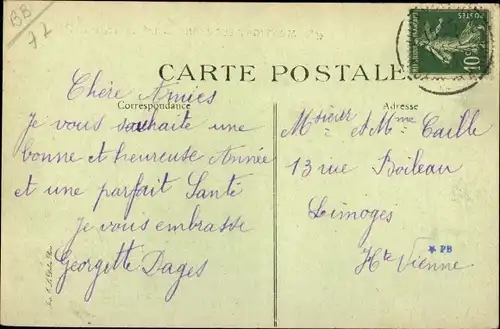 BB
72
POSTES
10
CARTE POSTALE
Correspondance
Adresse
Chère Amies
Je vous souhaite une
bonne et heureuse Année
et une parfait Santé
Je vous embrasse
Georgette Pages
Msieur et Mme Caille
13 rue Boileau
Limoges
* PB
Hte Vienne